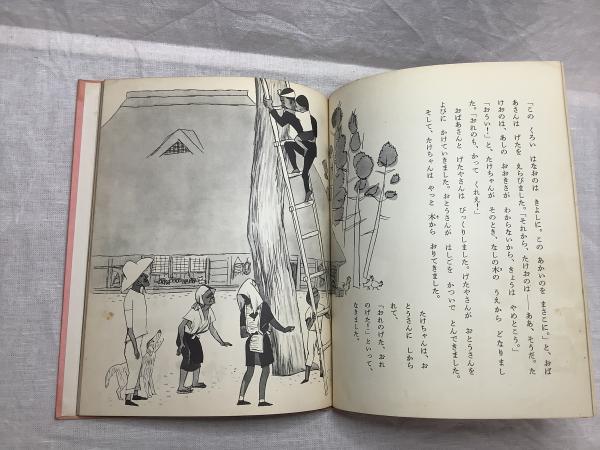 「この　くろい　はなおのは　きよしに。この　あかいのを　まさこに。」と、おば
あさんは　げたを　えらびました。「それから、たけおのは──ああ、そうだ。た
けおのは、あしの　おおきさが　わからないから、きょうは　やめとこう。」
「おうい！」と、たけちゃんが　そのとき、なしの木の　うえから　どなりまし
た。「おれのも、かって　くれえ！」
おばあさんと　げたやさんは　びっくりしました。げたやさんが　おとうさんを
よびに　かけていきました。おとうさんが　はしごを　かついで　とんできました。
そして、たけちゃんは　やっと　木から　おりてきました。
たけちゃんは、お
とうさんに　しから
れて、
「おれのげた、おれ
のげた！」といって、
なきました。